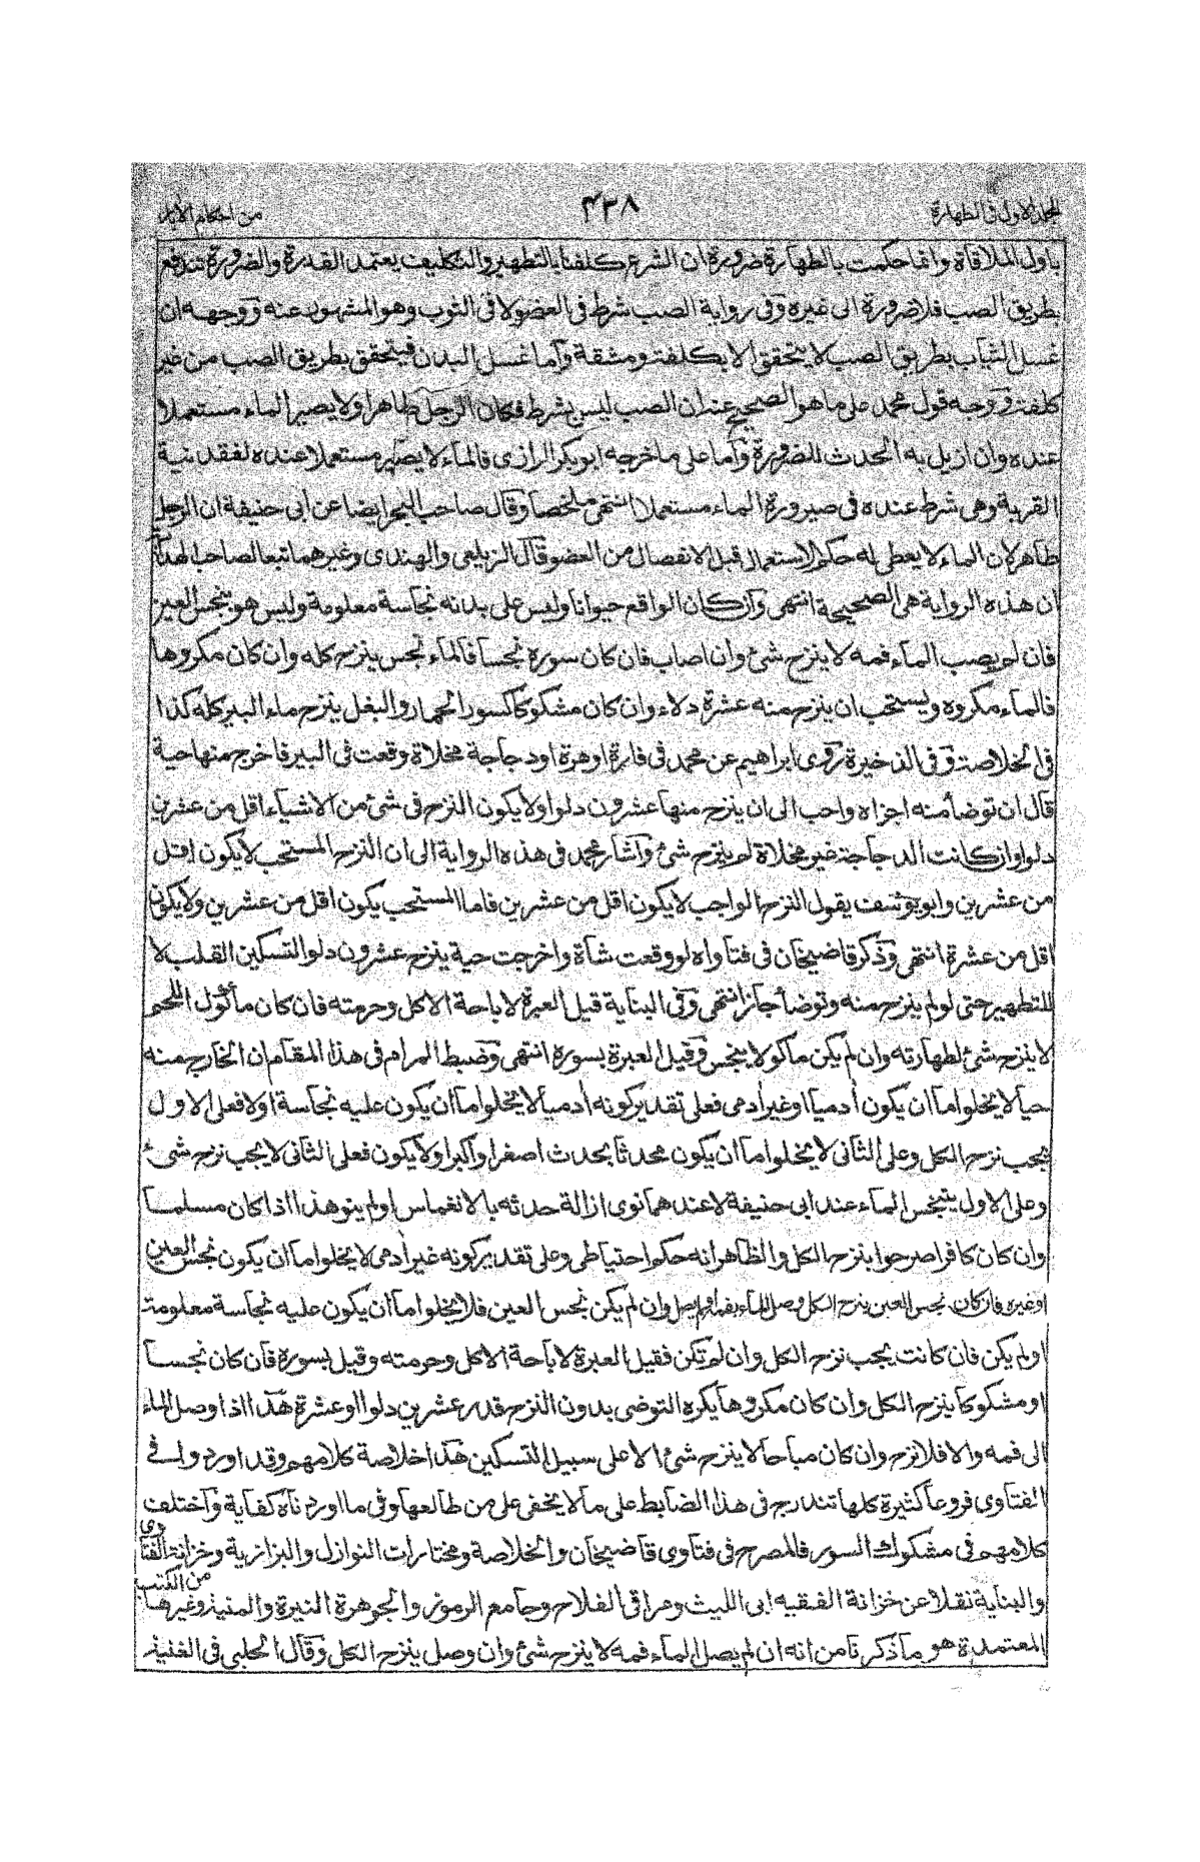 المجلد الاول فى الطهارة
۴۳۸
من احكام الآبار
باول الملاقاة وانما حكمت بالطهارة ضرورة ان الشرع كلفنا بالتطهير والتكليف يعتمد القدرة والضرورة تندفع
بطريق الصب فلا ضرورة الى غيره وفى رواية الصب شرط فى العضو لا فى الثوب وهو المشهور عنه ووجهه ان
غسل الثياب بطريق الصب لا يتحقق الا بكلفة ومشقة وأما غسل البدن فيتحقق بطريق الصب من غير
كلفة ووجه قول محمد على ما هو الصحيح عنه ان الصب ليس بشرط فكان الرجل طاهرا ولا يصير الماء مستعملا
عنده وان ازيل به الحدث للضرورة وأما على ما خرجه ابو بكر الرازى فالماء لا يصير مستعملا عنده لفقد نية
القربة وهى شرط عنده فى صيرورة الماء مستعملا انتهى ملخصا وقال صاحب البحر ايضا عن أبى حنيفة ان الرجل
طاهر لان الماء لا يعطى له حكم الاستعمال قبل الانفصال من العضو قال الزيلعى والهندى وغيرهما تبعا لصاحب الهداية
ان هذه الرواية هى الصحيحة انتهى وان كان الواقع حيوانا وليس على بدنه نجاسة معلومة وليس هو بنجس العين
فان لم يصب الماء فمه لا ينزح شئ وان اصاب فان كان سوره نجسا فالماء نجس ينزح كله وان كان مكروها
فالماء مكروه ويستحب ان ينزح منه عشرة دلاء وان كان مشكوكا كسور الحمار والبغل ينزح ماء البير كله كذا
فى الخلاصة وفى الذخيرة روى ابراهيم عن محمد فى فارة او هرة او دجاجة مخلاة وقعت فى البير فاخرج منها حية
قال ان توضأ منه اجزاه واحب الى ان ينزح منها عشرون دلوا ولا يكون النزح فى شئ من الاشياء اقل من عشرين
دلوا وان كانت الدجاجة غير مخلاة لم ينزح شئ وأشار محمد فى هذه الرواية الى ان النزح المستحب لا يكون اقل
من عشرين وابو يوسف يقول النزح الواجب لا يكون اقل من عشرين فاما المستحب يكون اقل من عشرين ولا يكون
اقل من عشرة انتهى وذكر قاضيخان فى فتاواه لو وقعت شاة واخرجت حية ينزح عشرون دلوا لتسكين القلب لا
للتطهير حتى لو لم ينزح منه وتوضأ جاز انتهى وفى البناية قيل العبرة لاباحة الاكل وحرمته فان كان مأكول اللحم
لا ينزح شئ لطهارته وان لم يكن ماكولا ينجس وقيل العبرة بسوره انتهى وضبط المرام فى هذا المقام ان الخارج منه
حيا لا يخلو اما ان يكون أدميا او غير أدمى فعلى تقدير كونه أدميا لا يخلو اما ان يكون عليه نجاسة او لا فعلى الاول
يجب نزح الكل وعلى الثانى لا يخلو اما ان يكون محدثا بحدث اصغر او اكبر او لا يكون فعلى الثانى لا يجب نزح شئ
وعلى الاول يتنجس الماء عند ابى حنيفة لا عندهما نوى ازالة حدثه بالانغماس او لم ينو هذا اذا كان مسلما
وان كان كافرا صرحوا بنزح الكل والظاهر انه حكم احتياطى وعلى تقدير كونه غير أدمى لا يخلو اما ان يكون نجس العين
او غيره فان كان نجس العين ينزح الكل وصل الماء بفمه او لم يصل وان لم يكن نجس العين فلا يخلو اما ان يكون عليه نجاسة معلومة
او لم يكن فان كانت يجب نزح الكل وان لم تكن فقيل العبرة لاباحة الاكل وحرمته وقيل بسوره فان كان نجسا
او مشكوكا ينزح الكل وان كان مكروها يكره التوضى بدون النزح قدر عشرين دلوا او عشرة هذا اذا وصل الماء
الى فمه والا فلا نزح وان كان مباحا لا ينزح شئ الا على سبيل التسكين هذا خلاصة كلامهم وقد اوردوا فى
الفتاوى فروعا كثيرة كلها تندرج فى هذا الضابط على ما لا يخفى على من طالعها وفى ما اوردناه كفاية وأختلف
كلامهم فى مشكوك السور فالمصرح فى فتاوى قاضيخان والخلاصة ومختارات النوازل والبزازية وخزانة الفتاوى
والبناية نقلا عن خزانة الفقيه ابى الليث ومراقى الفلاح وجامع الرموز والجوهرة النيرة والمنية وغيرها من الكتب
المعتمدة هو ما ذكرنا من انه ان لم يصل الماء فمه لا ينزح شئ وان وصل ينزح الكل وقال الحلبى فى الغنية